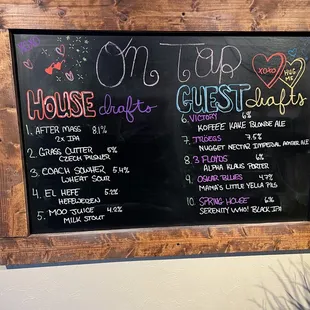 XOXO
On Tap
XOXO
HUG ME
HOUSE drafts
1. AFTER MASS 8.1%
2X IPA
2. GRASS CUTTER 5%
CZECH PILSNER
3. COACH SOWHER 5.4%
WHEAT SOUR
4. EL HEFE 5.2%
HEFEWEIZEN
5. MOO JUICE 4.2%
MILK STOUT
GUEST drafts
6. VICTORY 6%
KOFFEE KAKE BLONDE ALE
7. TRÖEGS 7.5%
NUGGET NECTAR IMPERIAL AMBER ALE
8. 3 FLOYDS 6%
ALPHA KLAUS PORTER
9. OSKAR BLUES 4.7%
MAMA'S LITTLE YELLA PILS
10. SPRING HOUSE 6%
SERENITY WHO! BLACK IPA